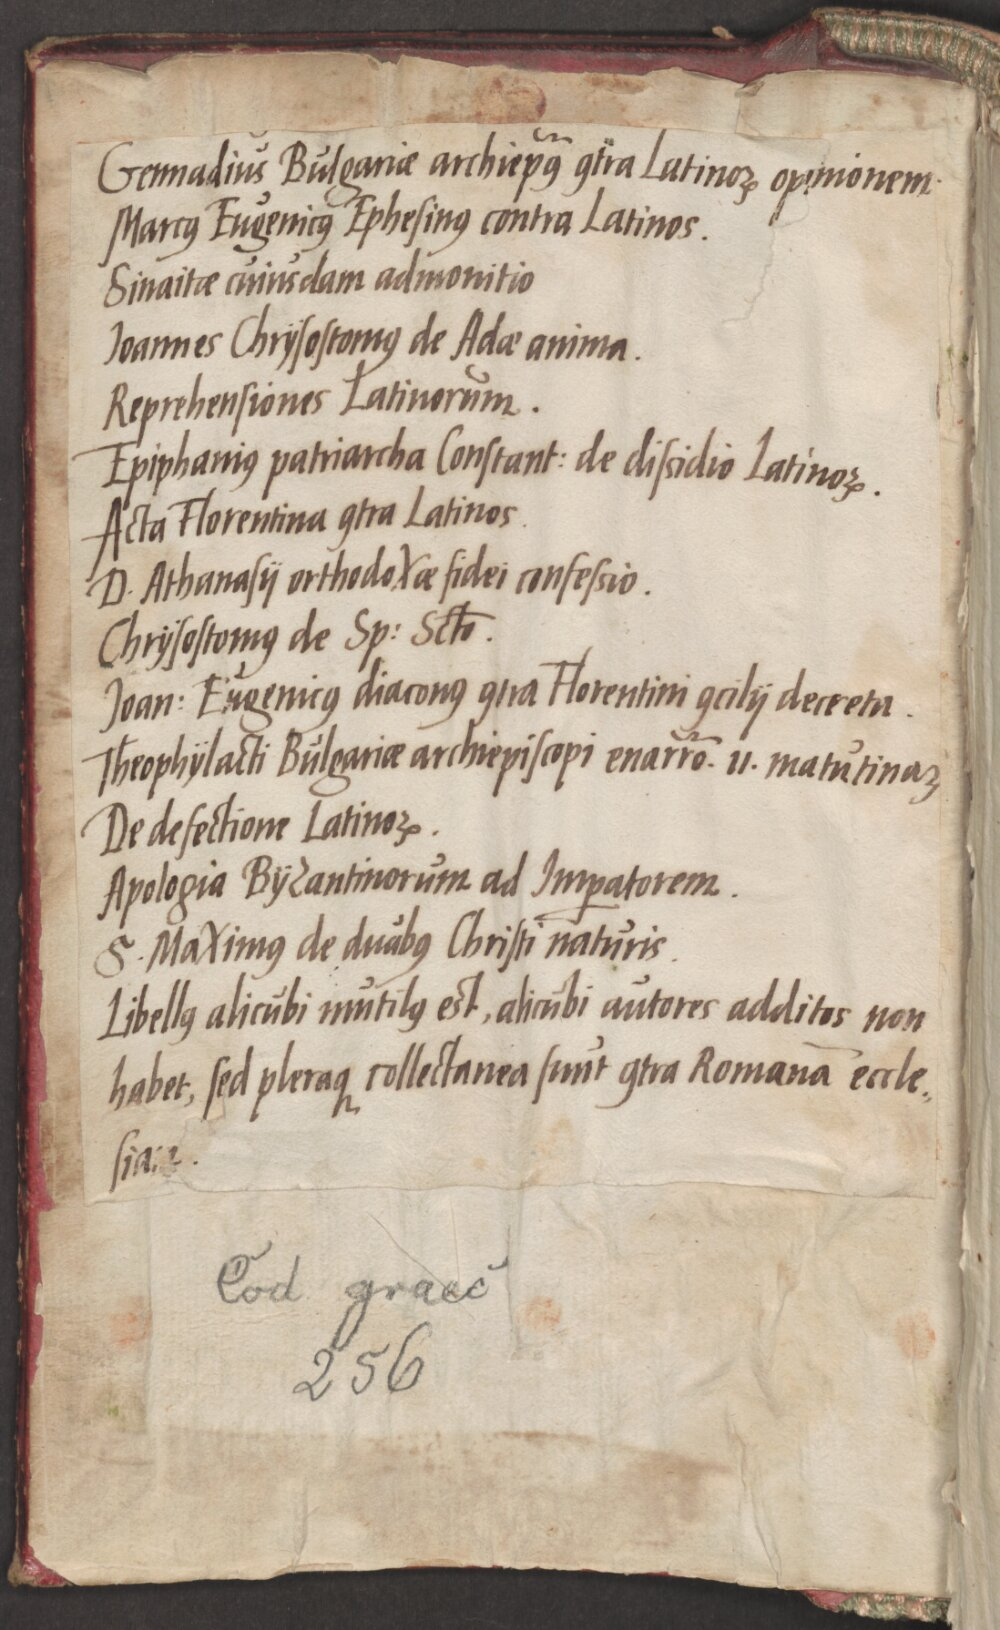 Gennadius Bulgariæ archiepꝰ ꝯtra Latinoꝝ opinionem.
Marcꝰ Eugenicꝰ Ephesinꝰ contra Latinos.
Sinaitæ cuiusdam admonitio
Joannes Chrÿsostomꝰ de Adæ anima.
Reprehensiones Latinorum.
Epiphaniꝰ patriarcha Constant: de dissidio Latinoꝝ.
Acta Florentina ꝯtra Latinos.
D. Athanasij orthodoxæ fidei confessio.
Chrÿsostomꝰ de Sp: Sc̄to.
Joan: Eugenicꝰ diaconꝰ ꝯtra Florentini ꝯcilij decreta.
Theophÿlacti Bulgariæ archiepiscopi enarrõ. 11. matutinaꝝ
De defectione Latinoꝝ.
Apologia Bÿzantinorum ad Imꝑatorem.
S. Maximꝰ de duabꝰ Christi naturis.
Libellꝰ alicubi mutilꝰ est, alicubi autores additos non
habet, sed pleraqꝫ collectanea sunt ꝯtra Romanā eccle„
siam.
Cod graec
256